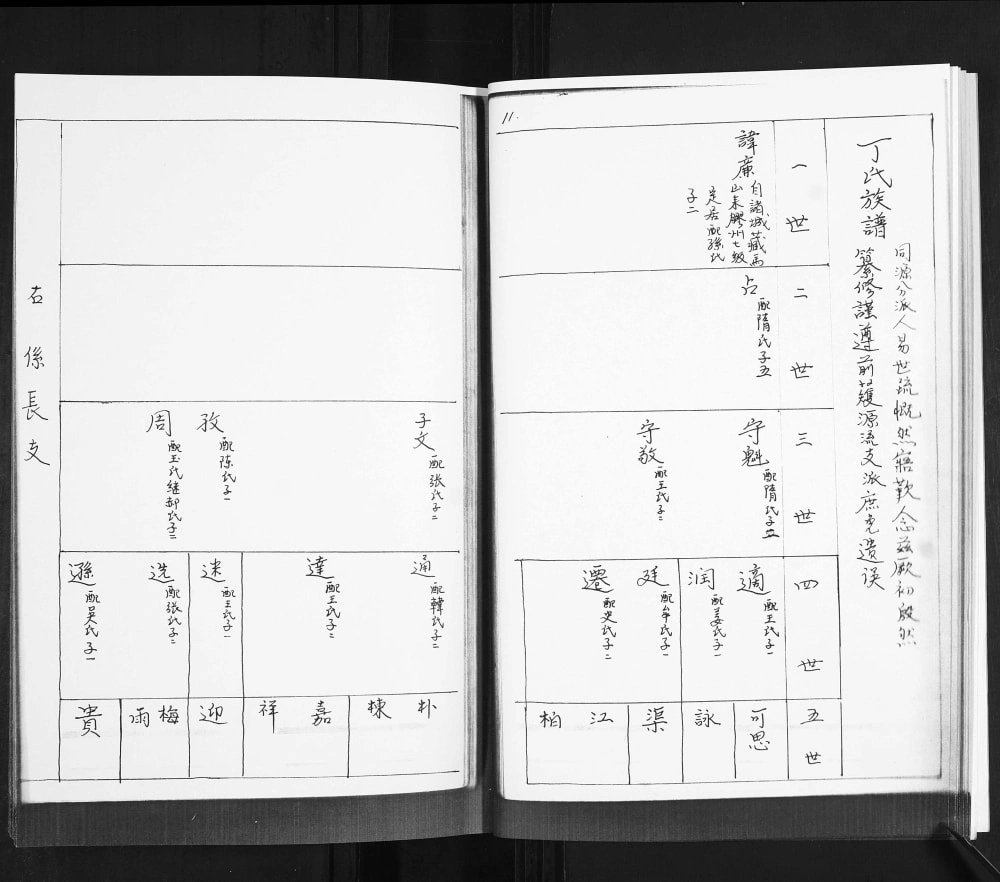 11.
同源分派人易世疏慨然寤歎念兹厥初殷然
丁氏族譜 纂修謹遵前簿源流支派庶免遗误
一世
二世
三世
四世
五世
諱廉
自諸城藏馬
山来膠州七級
定居配孫氏
子二
占 配隋氏子五
守魁 配隋氏子二
守敬 配王氏子二
適 配王氏子一
润 配姜氏子一
廷 配牟氏子一
遷 配史氏子二
可思
詠
渠
江
柏
子文 配張氏子二
孜 配陈氏子一
周 配玉氏继郝氏子二
通 配韓氏子二
達 配王氏子二
迷 配王氏子一
选 配张氏子二
遜 配吴氏子一
朴
棟
嘉
祥
迎
梅
雨
貴
右係長支